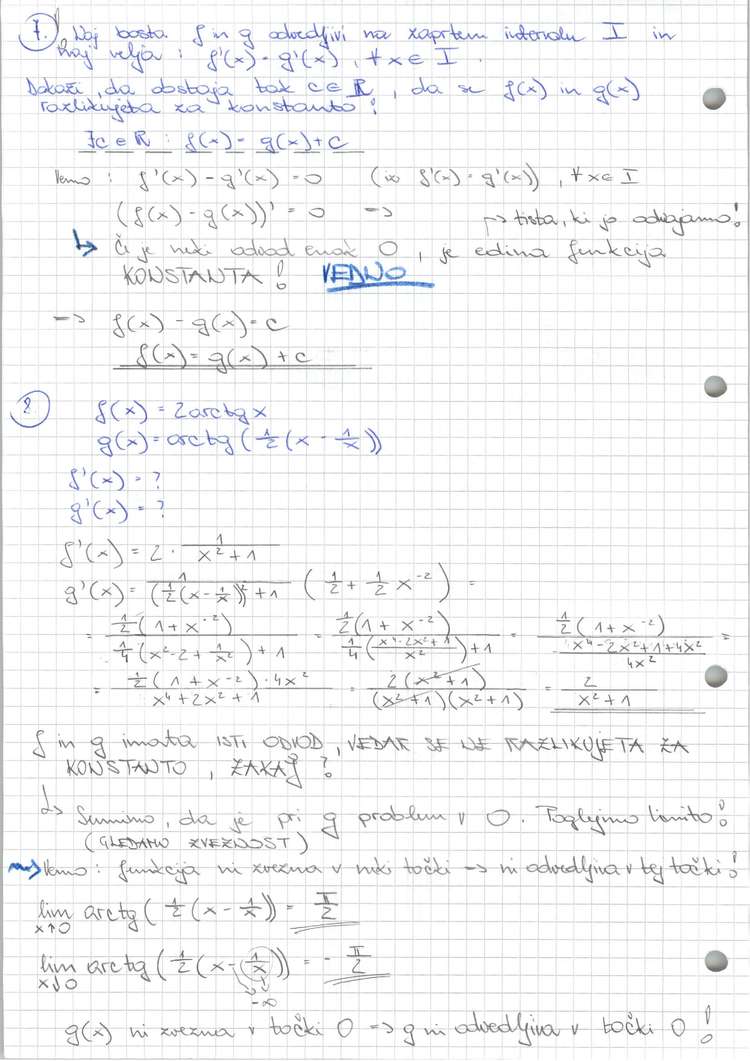 1. Naj bosta f in g odvedljivi na zaprtem intervalu I in
naj velja : f'(x) = g'(x), ∀x ∈ I.
Dokaži, da obstaja tak c∈ℝ, da se f(x) in g(x)
razlikujeta za konstanto!
∃c∈ℝ : f(x) = g(x)+c
Vemo : f'(x) - g'(x) = 0 (∞ f'(x) = g'(x)), ∀x∈I
(f(x) - g(x))' = 0 => → tista, ki jo odvajamo!
↳ Če je neki odvod enak 0, je edina funkcija
KONSTANTA! VEDNO
=> f(x) - g(x) = c
f(x) = g(x) + c
2. f(x) = 2arctg x
g(x) = arctg (1/2 (x - 1/x))
f'(x) = ?
g'(x) = ?
f'(x) = 2 · 1/(x²+1)
g'(x) = 1/((1/2(x-1/x))²+1) (1/2 + 1/2 x⁻²) =
= 1/2(1+x⁻²) / (1/4(x²-2+1/x²)+1) = 1/2(1+x⁻²) / (1/4((x⁴-2x²+1)/x²)+1) = 1/2(1+x⁻²) / ((x⁴-2x²+1+4x²)/4x²) =
= 1/2(1+x⁻²)·4x² / (x⁴+2x²+1) = 2(x²+1) / ((x²+1)(x²+1)) = 2/(x²+1)
f in g imata ISTI ODVOD, VENDAR SE NE RAZLIKUJETA ZA
KONSTANTO, ZAKAJ?
↳ Sumimo, da je pri g problem v 0. Poglejmo limito!
(GLEDAMO ZVEZNOST)
→ Vemo : funkcija ni zvezna v neki točki => ni odvedljiva v tej točki!
lim x↑0 arctg(1/2(x-1/x)) = π/2
lim x↓0 arctg(1/2(x-1/x)) = -π/2
-∞
g(x) ni zvezna v točki 0 => g ni odvedljiva v točki 0!